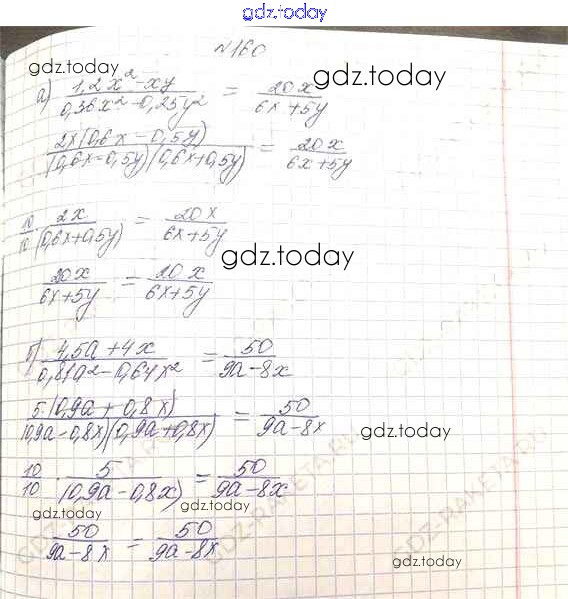 gdz.today
№160
gdz.today
gdz.today
а) (1,2x² - xy)/(0,36x² - 0,25y²) = 20x/(6x + 5y)
2x(0,6x - 0,5y)/((0,6x - 0,5y)(0,6x + 0,5y)) = 20x/(6x + 5y)
10/10 · 2x/(0,6x + 0,5y) = 20x/(6x + 5y)
gdz.today
20x/(6x + 5y) = 20x/(6x + 5y)
б) (4,5a + 4x)/(0,81a² - 0,64x²) = 50/(9a - 8x)
5(0,9a + 0,8x)/((0,9a - 0,8x)(0,9a + 0,8x)) = 50/(9a - 8x)
gdz.today
10/10 · 5/(0,9a - 0,8x) = 50/(9a - 8x)
gdz.today
gdz.today
50/(9a - 8x) = 50/(9a - 8x)
gdz.today
GDZ-RAKETA.RU